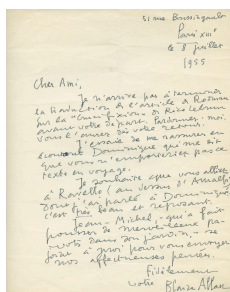 51 rue Boussingault
Paris XIIIe
le 8 juillet
1955
Cher Ami,
Je n'arrive pas à terminer
la traduction de l'article à Retourn
sur la "Crucifixion" de Rico Lebrun
avant votre départ. Pardonnez-moi.
Vous l'aurez dès votre retour.
J'essaie de me rassurer en
écoutant Dominique qui me dit
que vous n'emporteriez pas ce
texte en voyage.
Je souhaite que vous alliez
à Ravello (au dessus d'Amalfi)
dont j'ai parlé à Dominique
c'est très beau et reposant.
Jean-Michel, qui a fait
pousser de merveilleux
dans son jardin, se
joint à moi pour vous envoyer
nos affectueuses pensées.
Fidèlement
votre Blaise Allan